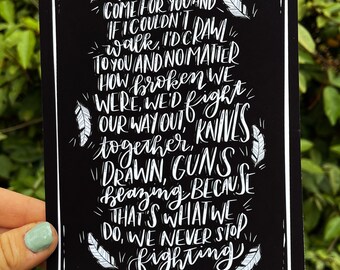 COME FOR YOU AND
IF I COULDN'T
walk, I'D CRAWL
TO YOU AND NO MATTER
HOW broken WE
WERE, WE'D fight
OUR WAY OUT
together, KNIVES
DRAWN, GUNS
blazing BECAUSE
THAT'S WHAT WE
DO, WE NEVER STOP
fighting